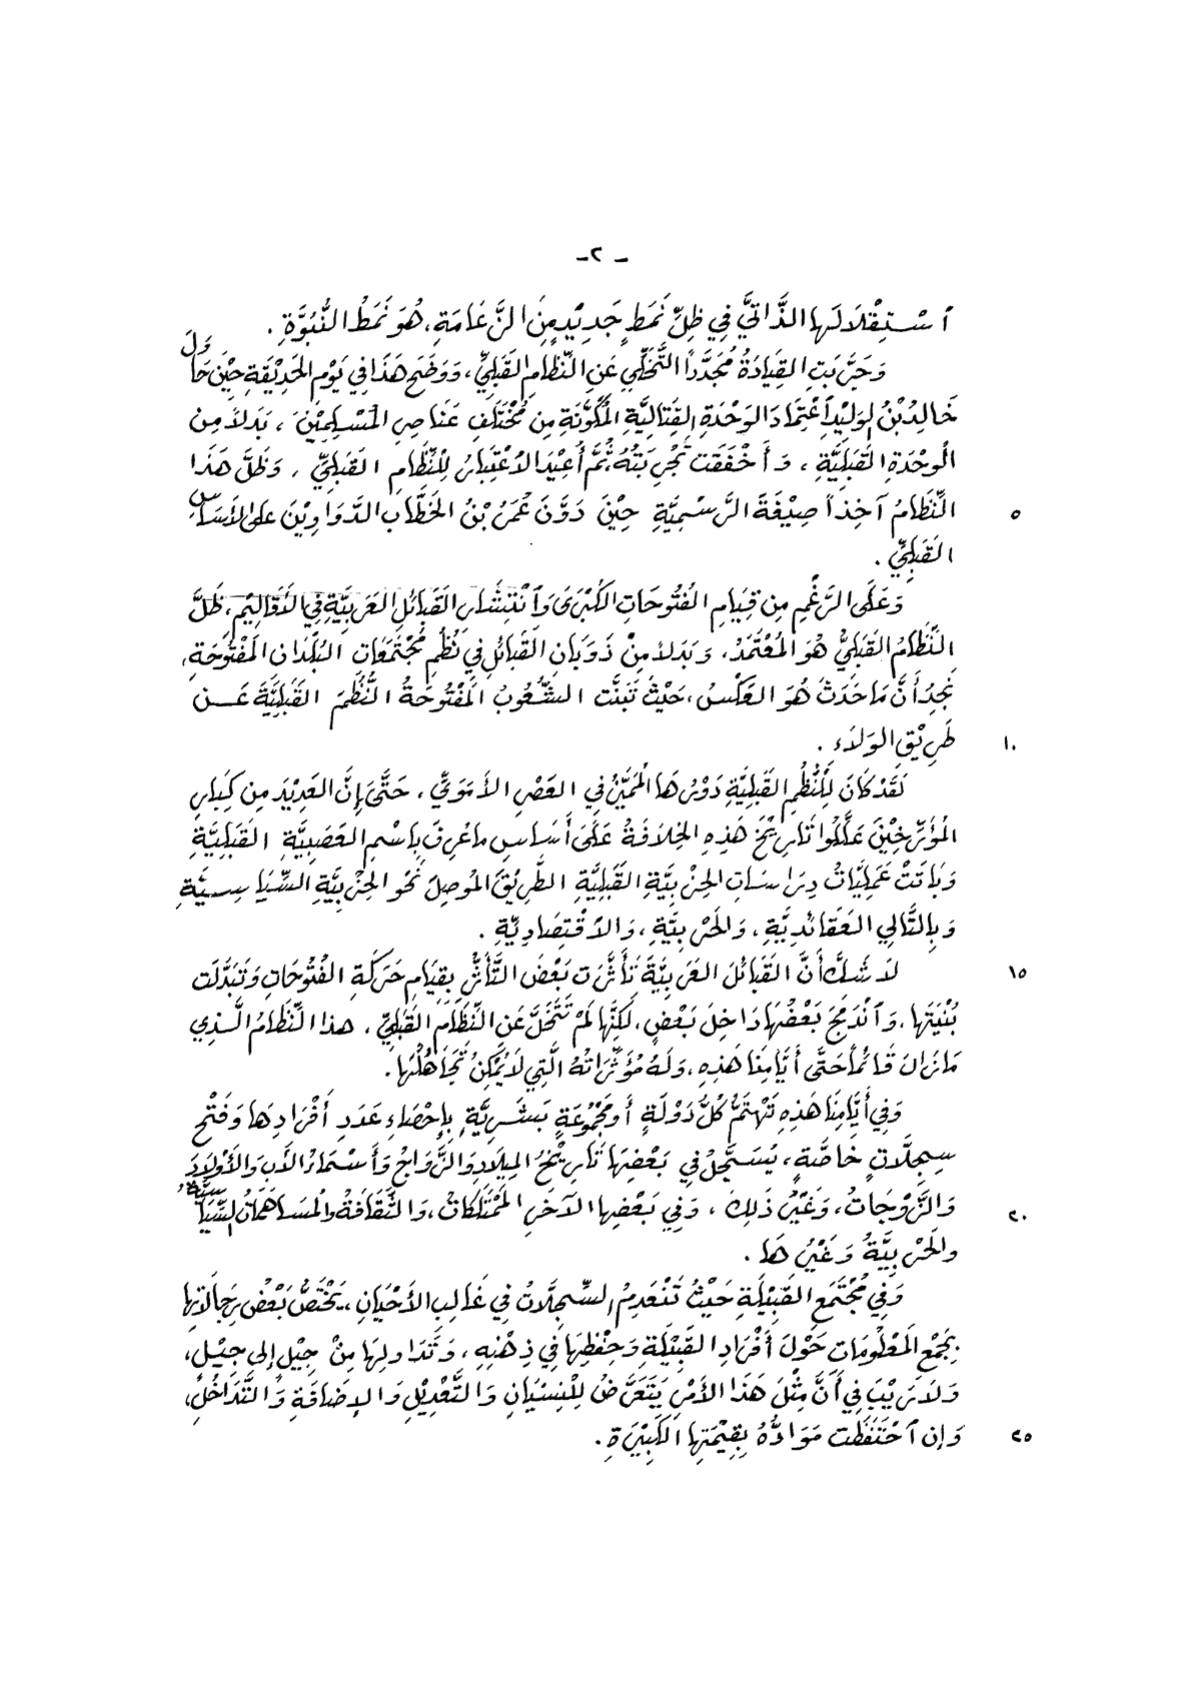 - ٢ -
ٱسْتِقْلَالَها الذَّاتيَّ فِي ظِلِّ نَمَطٍ جَدِيْدٍ مِنَ الزَّعَامَةِ، هُوَ نَمَطُ النُّبُوَّةِ .
وَجَرَّبَتِ القِيَادَةُ مُجَدَّداً التَّخَلِّي عَنِ النِّظَامِ القَبَلِيِّ، وَوَضَحَ هَذَا فِي يَوْمِ الحَدِيْقَةِ حِيْنَ حَاوَلَ
خَالِدُ بْنُ الوَلِيْدِ ٱعْتِمَادَ الوَحْدَةِ القِتَالِيَّةِ المُكَوَّنَةِ مِن مُخْتَلَفِ عَنَاصِرِ المُسْلِمِيْنَ ، بَدَلاً مِن
الْوِحْدَةِ القَبَلِيَّةِ ، وَأَخْفَقَت تَجْرِبَتُهُ ثُمَّ أُعِيْدَ الاعْتِبَارُ لِلْنِّظَامِ القَبَلِيِّ ، وَظَلَّ هَذَا
٥ النِّظَامُ آخِذاً صِيْغَةَ الرَّسْمِيَّةِ حِيْنَ دَوَّنَ عُمَرُ بْنُ الخَطَّاب الدَّوَاوِيْنَ عَلى الأَسَاسِ
القَبَلِيِّ .
وَعَلَى الرَّغْمِ مِن قِيَامِ الفُتُوحَاتِ الكُبْرَى وَٱنْتِشَارِ القَبَائِلِ العَرَبِيَّةِ فِي الأَقَالِيْمِ، ظَلَّ
النِّظَامُ القَبَلِيُّ هُوَ المُعْتَمَدُ، وَبَدَلاً مِنْ ذَوَبَانِ القَبَائِلِ فِي نُظُمِ مُجْتَمَعَاتِ البُلْدَانِ المَفْتُوحَةِ،
نَجِدُ أَنَّ مَا حَدَثَ هُوَ العَكْسُ ، حَيْثُ تَبَنَّت الشُّعُوبُ المَفْتُوحَةُ النُّظُمَ القَبَلِيَّةَ عَن
١٠ طَرِيْقِ الوَلاَءِ .
لَقَدْ كَانَ لِلْنُّظُمِ القَبَلِيَّةِ دَوْرُهَا المُمَيَّزُ فِي العَصْرِ الأُمَوِيِّ ، حَتَّى إِنَّ العَدِيْدَ مِن كِبَارِ
المُؤَرِّخِيْنَ عَلَّلُوا تَارِيْخَ هَذِهِ الخِلَافَةُ عَلَى أَسَاسِ مَا عُرِفَ بِاسْمِ العَصَبِيَّةِ القَبَلِيَّةِ
وَبَاتَتْ عَمَلِيَّاتُ دِرَاسَاتِ الحِزْبِيَّةِ القَبَلِيَّةِ الطَّرِيْقَ المُوصِلَ نَحْوَ الحِزْبِيَّةِ السِّيَاسِيَّةِ
وَبِالتَّالِي العَقَائِدِيَّةِ، وَالحَرْبِيَّةِ، وَالاقْتِصَادِيَّةِ .
١٥ لاَ شَكَّ أَنَّ القَبَائِلَ العَرَبِيَّةَ تَأَثَّرَت بَعْضَ التَّأَثُّرِ بِقِيَامِ حَرَكَةِ الفُتُوحَاتِ وَتَبَدَّلَت
بُنْيَتُها ، وَٱنْدَمَجَ بَعْضُهَا دَاخِلَ بَعْضٍ ، لَكِنَّها لَمْ تَتَخَلَّ عَنِ النِّظَامِ القَبَلِيِّ ، هذا النِّظَامُ الَّذِي
مَا زَالَ قَائِماً حَتَّى أَيَّامِنَا هَذِهِ ، وَلَهُ مُؤَثِّرَاتُهُ الَّتِي لاَ يُمْكِنُ تَجَاهُلُهَا .
وَفِي أَيَّامِنَا هَذِهِ تَهْتَمُّ كُلُّ دَوْلَةٍ أَو مَجْمُوعَةٍ بَشَرِيَّةٍ بِإِحْصَاءِ عَدَدِ أَفْرَادِهَا وَفَتْحِ
سِجِلَّاتٍ خَاصَّةٍ ، يُسَجَّلُ فِي بَعْضِهَا تَارِيْخُ المِيلَادِ وَالزَّوَاجُ وَأَسْمَاءُ الأَبِ وَالأَوْلَادِ
٢٠ وَالزَّوْجَاتُ، وَغَيْرُ ذَلِكَ ، وَفِي بَعْضِها الآخَرِ المُمْتَلَكَاتُ ، وَالثَّقَافَةُ والمُسَاهَمَاتُ السِّيَاسِيَّةُ
والحَرْبِيَّةُ وَغَيْرُهَا .
وَفِي مُجْتَمَعِ القَبِيْلَةِ حَيْثُ تَنْعَدِمُ السِّجِلَّاتُ فِي غَالِبِ الأَحْيَانِ ، يَخْتَصُّ بَعْضُ رِجَالَاتِها
بِجَمْعِ المَعْلُومَاتِ حَوْلَ أَفْرَادِ القَبِيْلَةِ وَحِفْظِهَا فِي ذِهْنِهِ ، وَتَدَاولِهَا مِنْ جِيْلٍ إِلى جِيْلٍ ،
وَلَا رَيْبَ فِي أَنَّ مِثْلَ هَذَا الأَمْرِ يَتَعَرَّضُ لِلْنِسْيَانِ وَالتَّعْدِيْلِ وَالإِضَافَةِ وَالتَّدَاخُلِ ،
٢٥ وَإِن ٱحْتَفَظَت مَوَادُّهُ بِقِيْمَتِهَا الكَبِيْرَةِ .